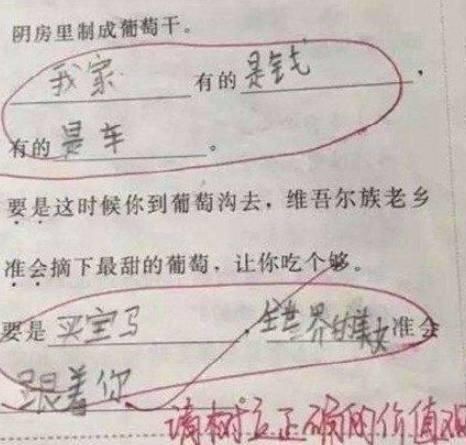 阴房里制成葡萄干。
我家有的是钱，
有的是车。
要是这时候你到葡萄沟去，维吾尔族老乡
准会摘下最甜的葡萄，让你吃个够。
要是买宝马，全世界的美女准会
跟着你。
请树立正确的价值观